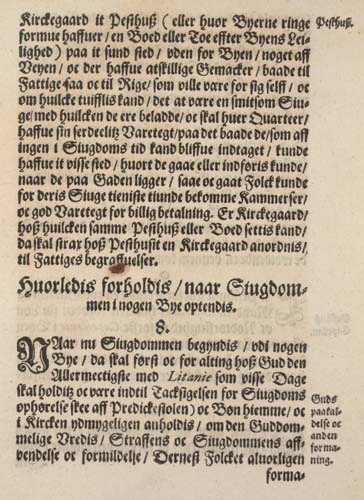 Kirckegaard it Pesthuß (eller huor Byerne ringe
Pesthuß.
formue haffuer / en Boed eller Toe effter Byens Lei-
lighed) paa it sund sted / vden for Byen / noget aff
Veyen / oc der haffue atskillige Gemacker / baade til
Fattige saa oc til Rige / som ville være for sig self / oc
om huilcke tuifflis kand / det at være en smitsom Siu-
ge / med huilcken de ere beladde / oc skal huer Quarteer /
haffue sin serdeelitz Varetegt / paa det baade de / som aff
ingen i Siugdoms tid kand bliffue indtaget / kunde
haffue it visse sted / huort de gaae eller indføris kunde /
naar de paa Gaden ligger / saae oc gaat Folck kunde
for deris Siuge tieniste tiunde bekomme Kammerser /
oc god Varetegt for billig betalning. Er Kirckegaard /
hoß huilcken samme Pesthuß eller Boed settis kand /
da skal strax hoß Pesthusit en Kirckegaard anordnis /
til Fattiges begraffuelser.
Huorledis forholdis / naar Siugdom-
men i nogen Bye optendis.
8.
NAar nu Siugdommen begyndis / vdi nogen
Bye / da skal først oc for alting hoß Gud den
Allermectigste med Litanie som visse Dage
skal holditz oc være indtil Tacksigelsen for Siugdoms
ophørelse skee aff Predickestolen) oc Bøn hiemme / oc
i Kircken ydmygeligen anholdis / om den Guddom-
melige Vredis / Straffens oc Siugdommens aff-
vendelse oc formildelse / Derneſt Folcket alvorligen
forma-
Guds
paakal-
delse oc
anden
forma-
ning.